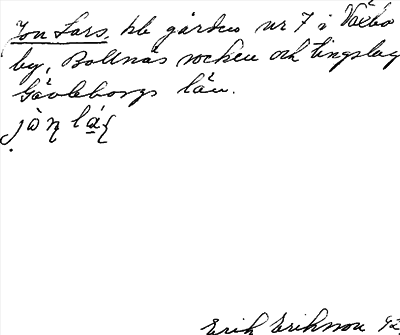 Jon Lars, hb gården nr 7 i Växbo
by, Bollnäs socken och tingslag
Gävleborgs län.
jòn lá̱ʂ
Erik Erikson 42